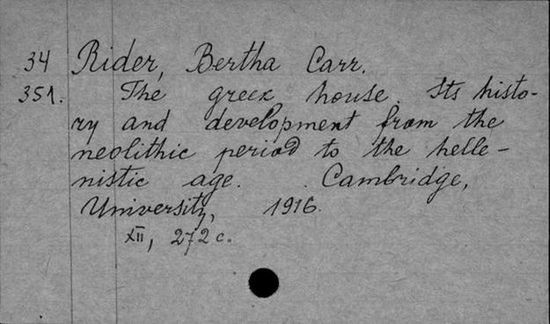 34 Rider, Bertha Carr.
351. The greek house. Its histo-
ry and development from the
neolithic period to the helle-
nistic age. Cambridge,
University, 1916.
XII, 272 c.